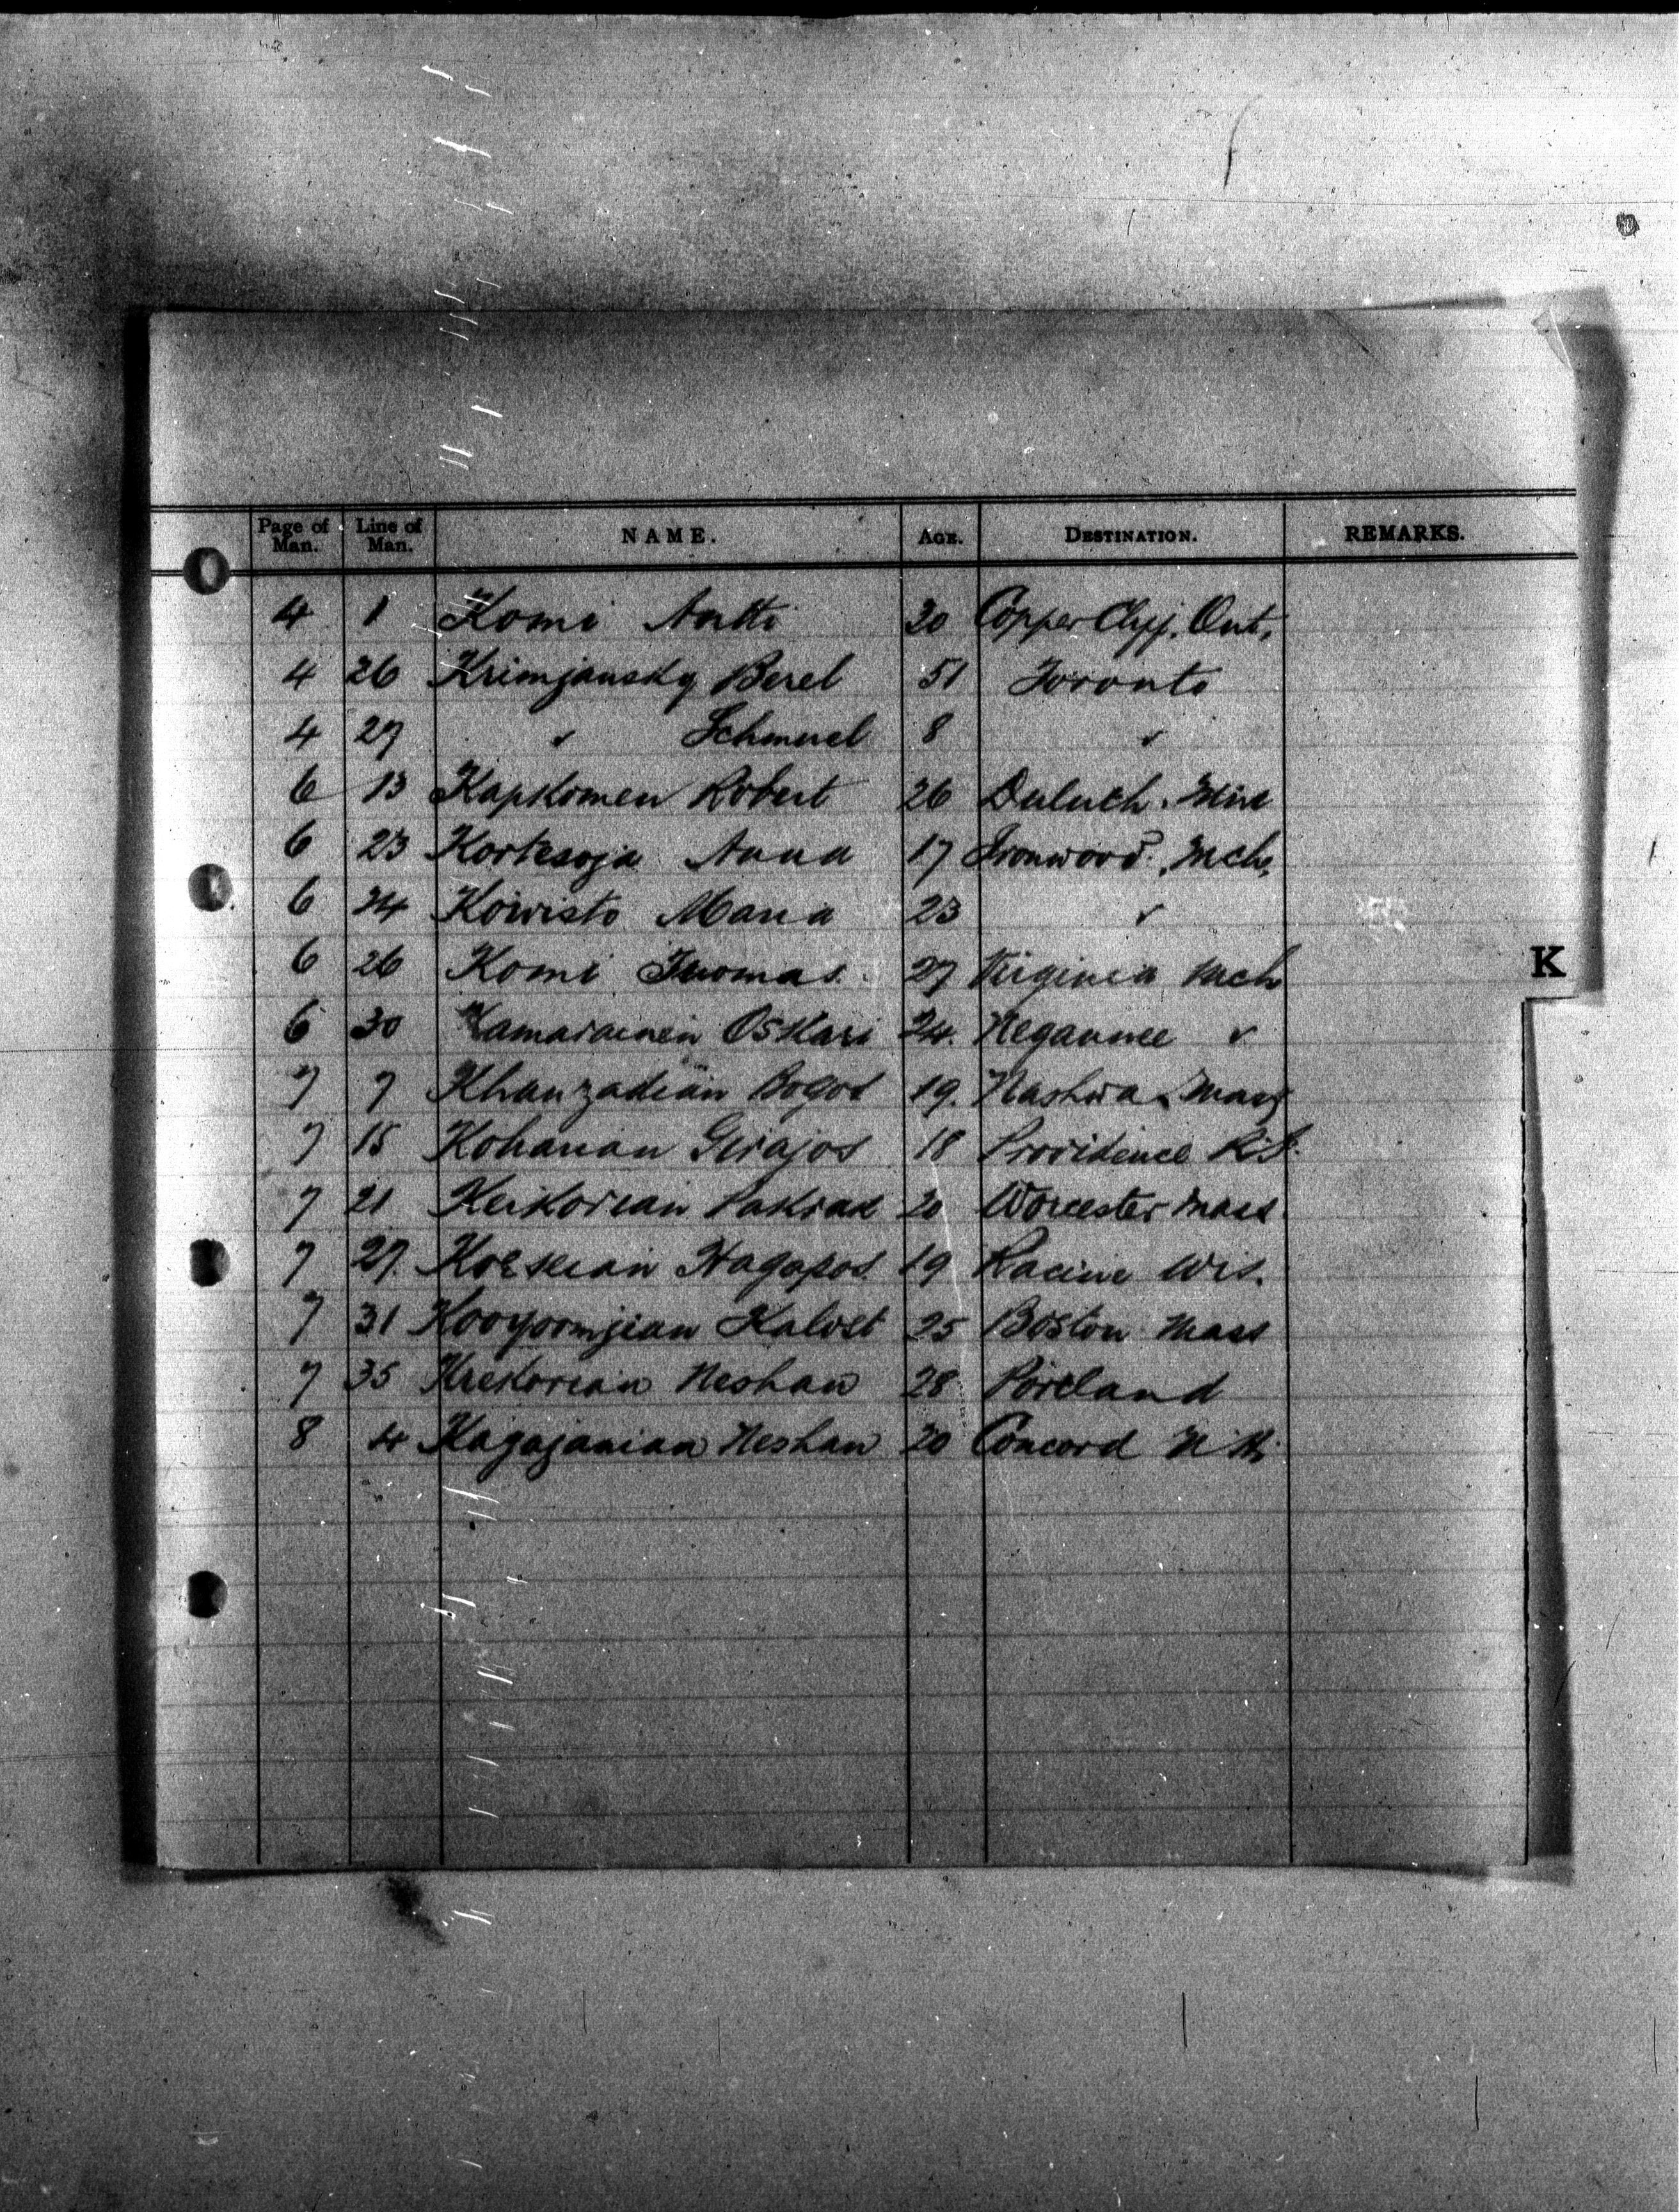 Page of Man. Line of Man. NAME. AGE. DESTINATION. REMARKS.
4 1 Komi Antti 20 Copper Cliff. Ont.
4 26 Krimjansky Berel 51 Toronto
4 27 " Schmerel 8 "
6 13 Kapkomen Robert 26 Duluth. Min
6 23 Kortesoja Anna 17 Ironwood. Mch.
6 24 Koivisto Maria 23 "
K
6 26 Komi Tuomas. 27 Virginia Mch
6 30 Kamarainen Oskari 24. Negaunee "
7 7 Khanzadian Bogos 19. Nashua Mass
7 15 Kohanian 18 Providence R.I.
7 21 20 Worcester Mass.
7 27. Hagopos. 19 Racine Wis.
7 31 Kooyoomjian Kalost 25 Boston Mass
7 35 Krekorian Neshan 28 Portland
8 4 Kagajanian Neshan 20 Concord N.H.